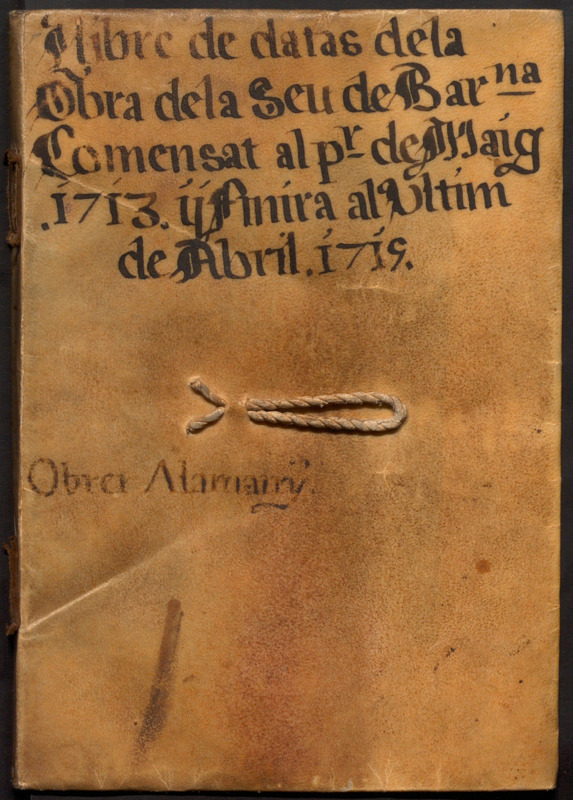 Llibre de datas dela
Obra dela Seu de Barna
Comensat al pr. de Maig
.1713. ÿ Finira al Ultim
de Abril. 1715.
Obrer Alamany.